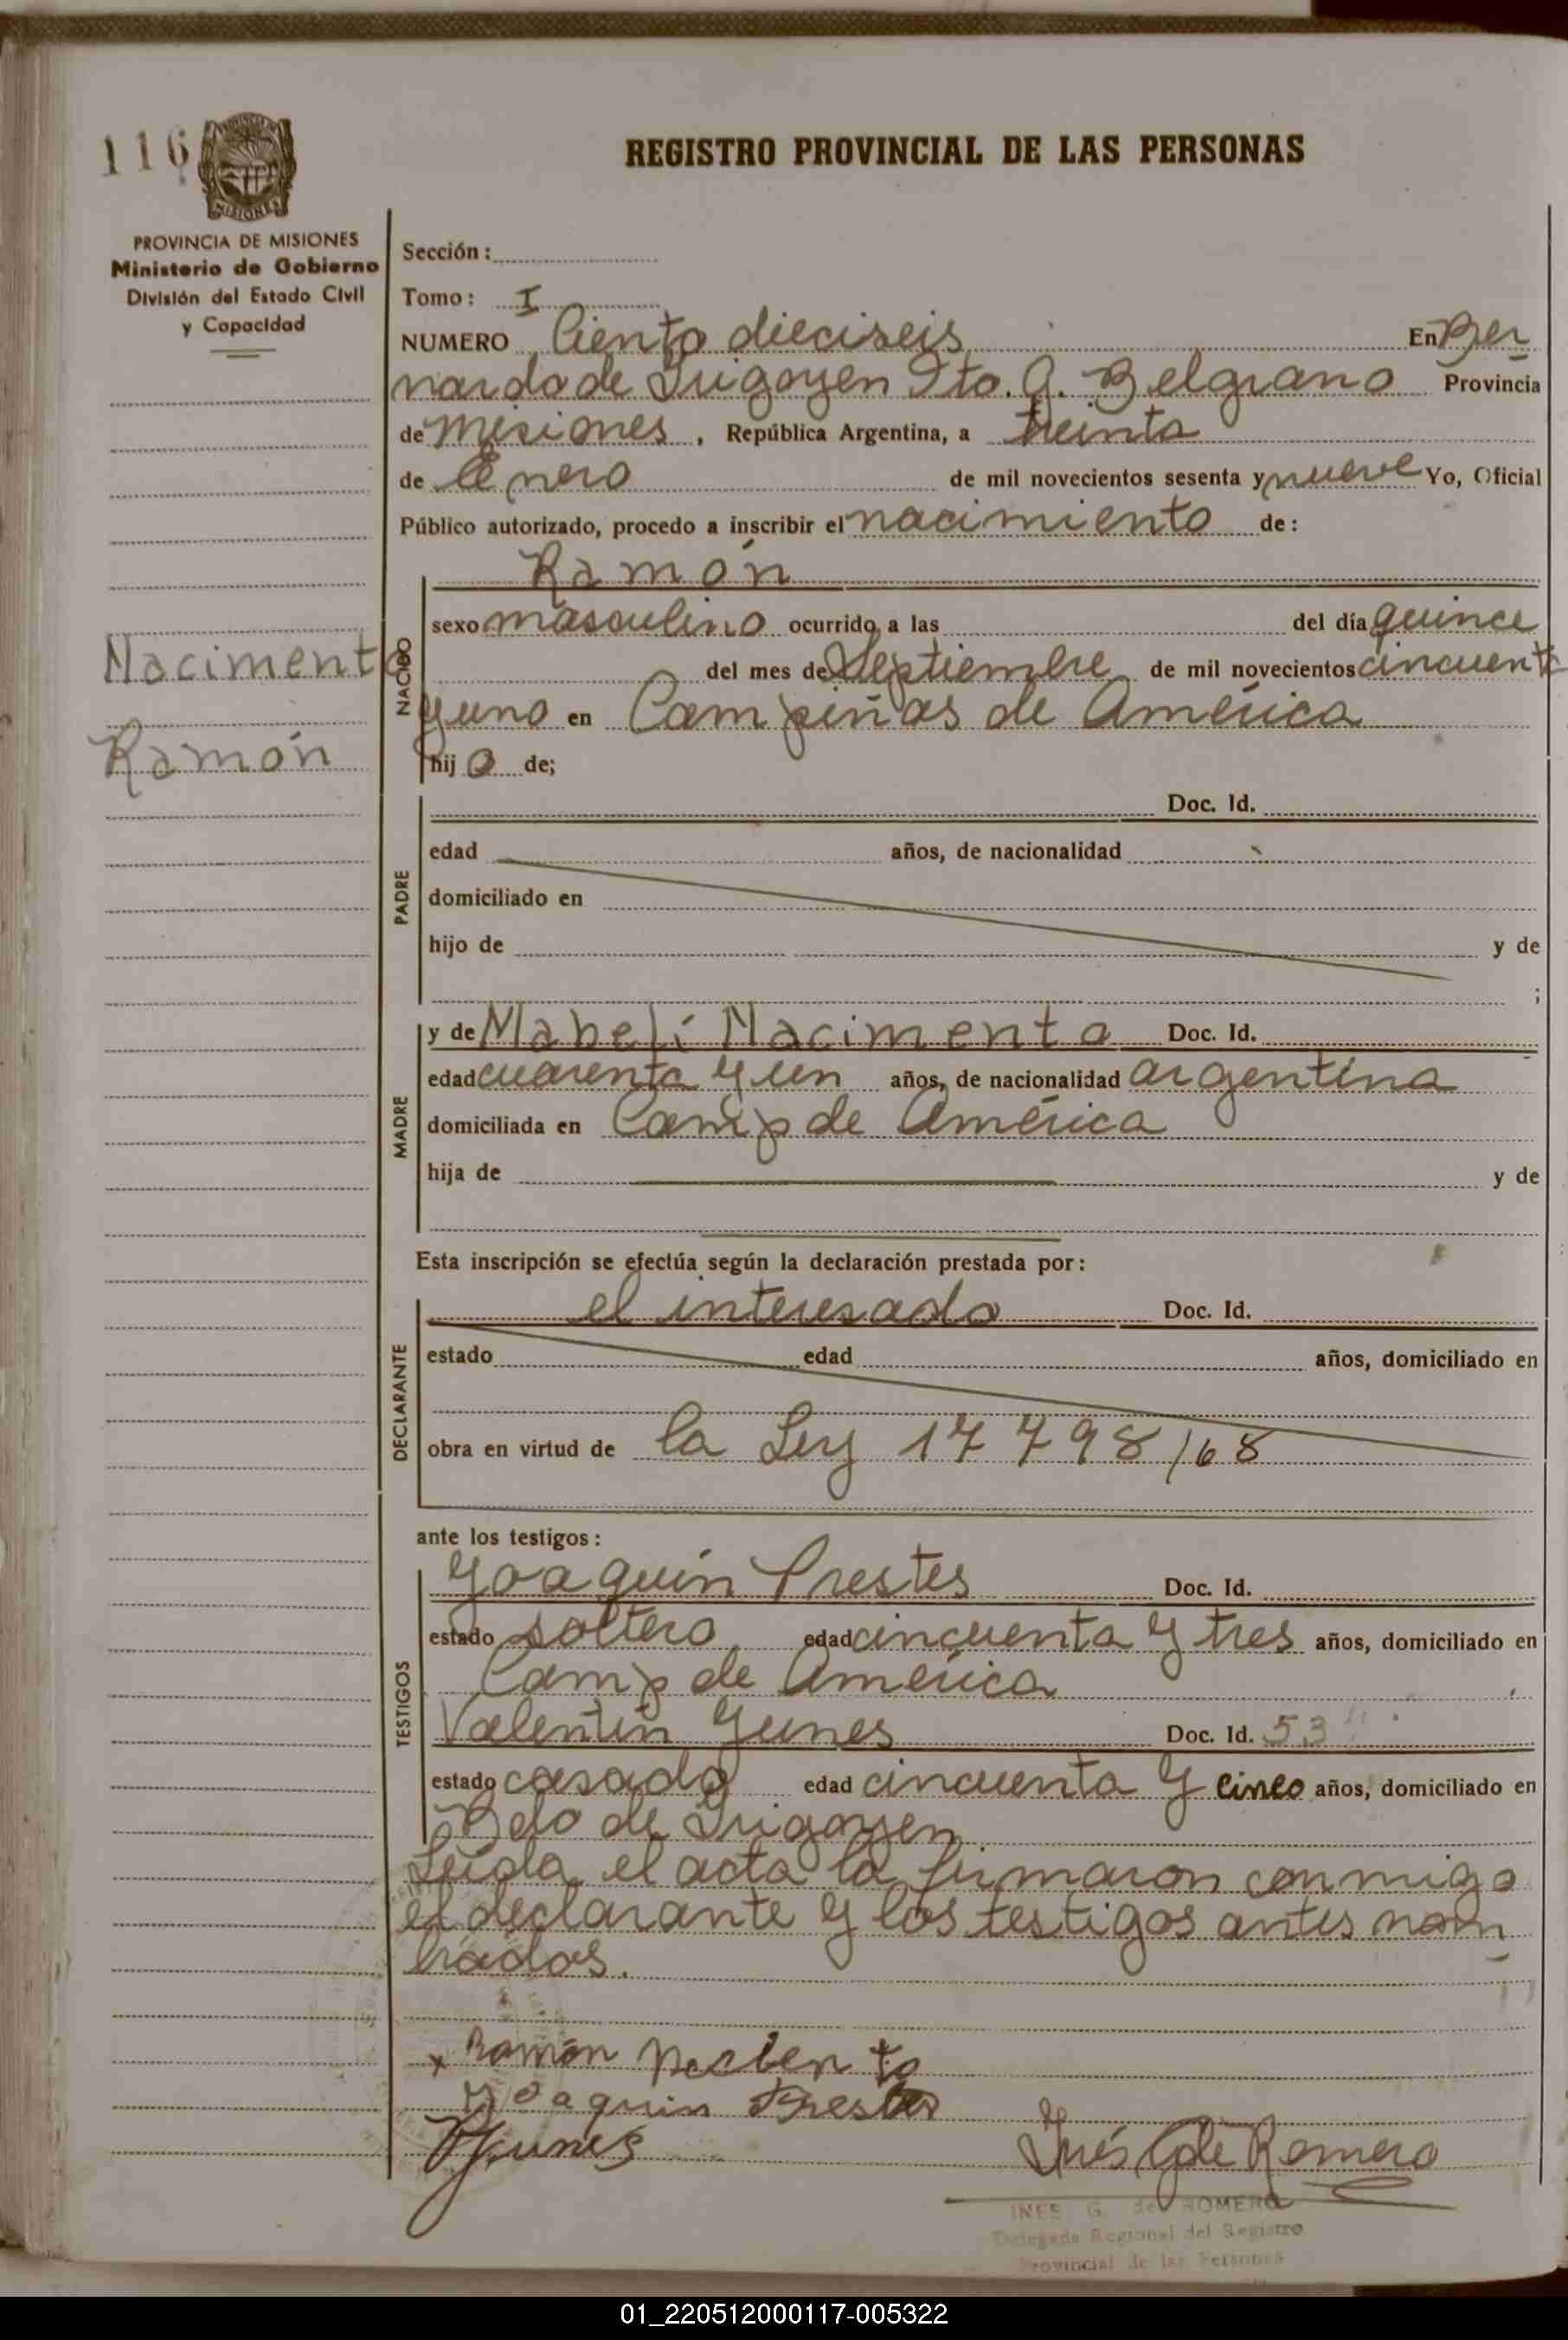 116
PROVINCIA DE
MISIONES
REGISTRO PROVINCIAL DE LAS PERSONAS
PROVINCIA DE MISIONES
Ministerio de Gobierno
División del Estado Civil
y Capacidad
Sección:
Tomo: I
NUMERO Ciento dieciseis En Ber
nardo de Irigoyen Dto. G. Belgrano Provincia
de Misiones, República Argentina, a treinta
de Enero de mil novecientos sesenta y nueve Yo, Oficial
Público autorizado, procedo a inscribir el nacimiento de:
Ramón
NACIDO
sexo masculino ocurrido a las del día quince
Nacimento
del mes de Septiembre de mil novecientos cincuenta
y uno en Campiñas de América
Ramón
hijo de;
PADRE
Doc. Id.
edad años, de nacionalidad
domiciliado en
hijo de y de
;
MADRE
y de Mabelí Nacimento Doc. Id.
edad cuarenta y un años, de nacionalidad argentina
domiciliada en Camp de América
hija de y de
Esta inscripción se efectúa según la declaración prestada por:
DECLARANTE
el interesado Doc. Id.
estado edad años, domiciliado en
obra en virtud de la Ley 17798/68
ante los testigos:
TESTIGOS
Joaquín Prestes Doc. Id.
estado soltero edad cincuenta y tres años, domiciliado en
Camp de América
Valentín Yunes Doc. Id. 53
estado casado edad cincuenta y cinco años, domiciliado en
Bdo de Irigoyen
Leída el acta la firmaron conmigo
el declarante y los testigos antes nom
brados.
x Ramón
Joaquin Prestes
Yunes
Inés G de Romero
INES G. de ROMERO
Delegada Regional del Registro
Provincial de las Personas
01_220512000117-005322